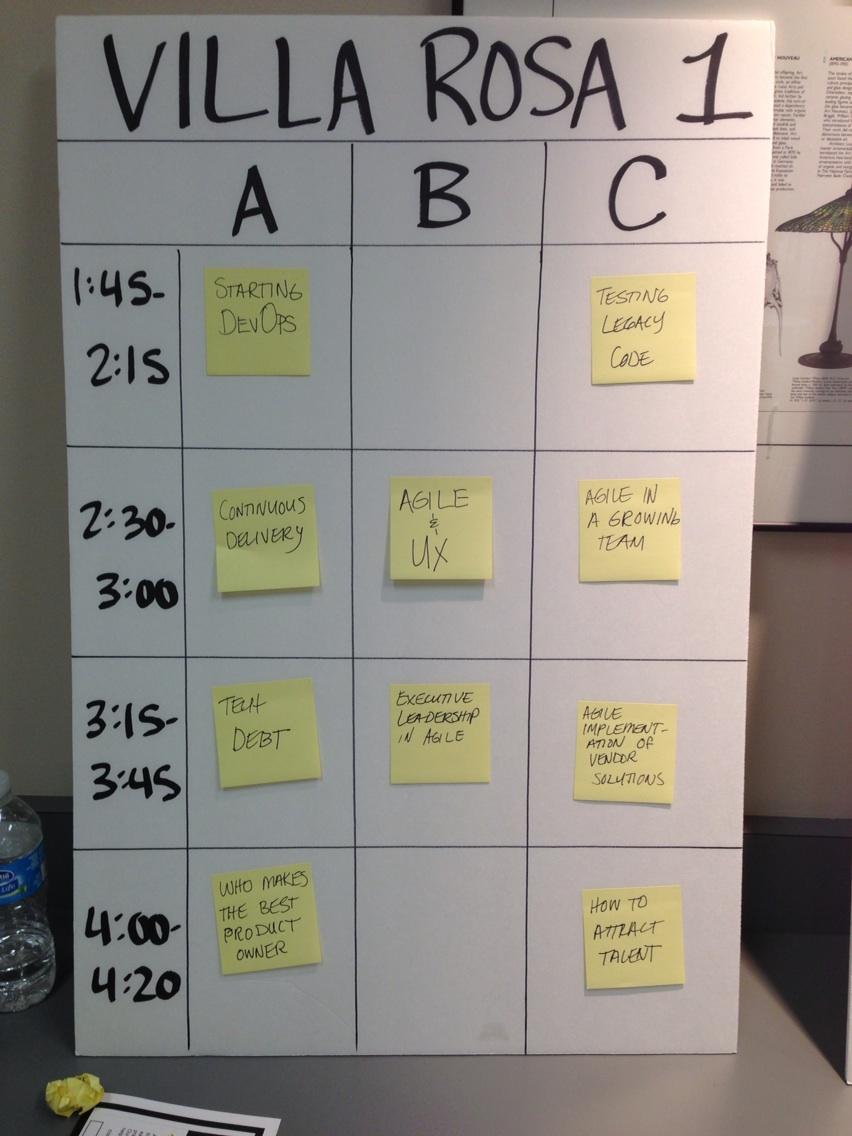 VILLA ROSA 1
A B C
1:45-
2:15
STARTING
DEVOPS
TESTING
LEGACY
CODE
2:30-
3:00
CONTINUOUS
DELIVERY
AGILE
&
UX
AGILE IN
A GROWING
TEAM
3:15-
3:45
TECH
DEBT
EXECUTIVE
LEADERSHIP
IN AGILE
AGILE
IMPLEMENT-
ATION OF
VENDOR
SOLUTIONS
4:00-
4:20
WHO MAKES
THE BEST
PRODUCT
OWNER
HOW TO
ATTRACT
TALENT
NOUVEAU